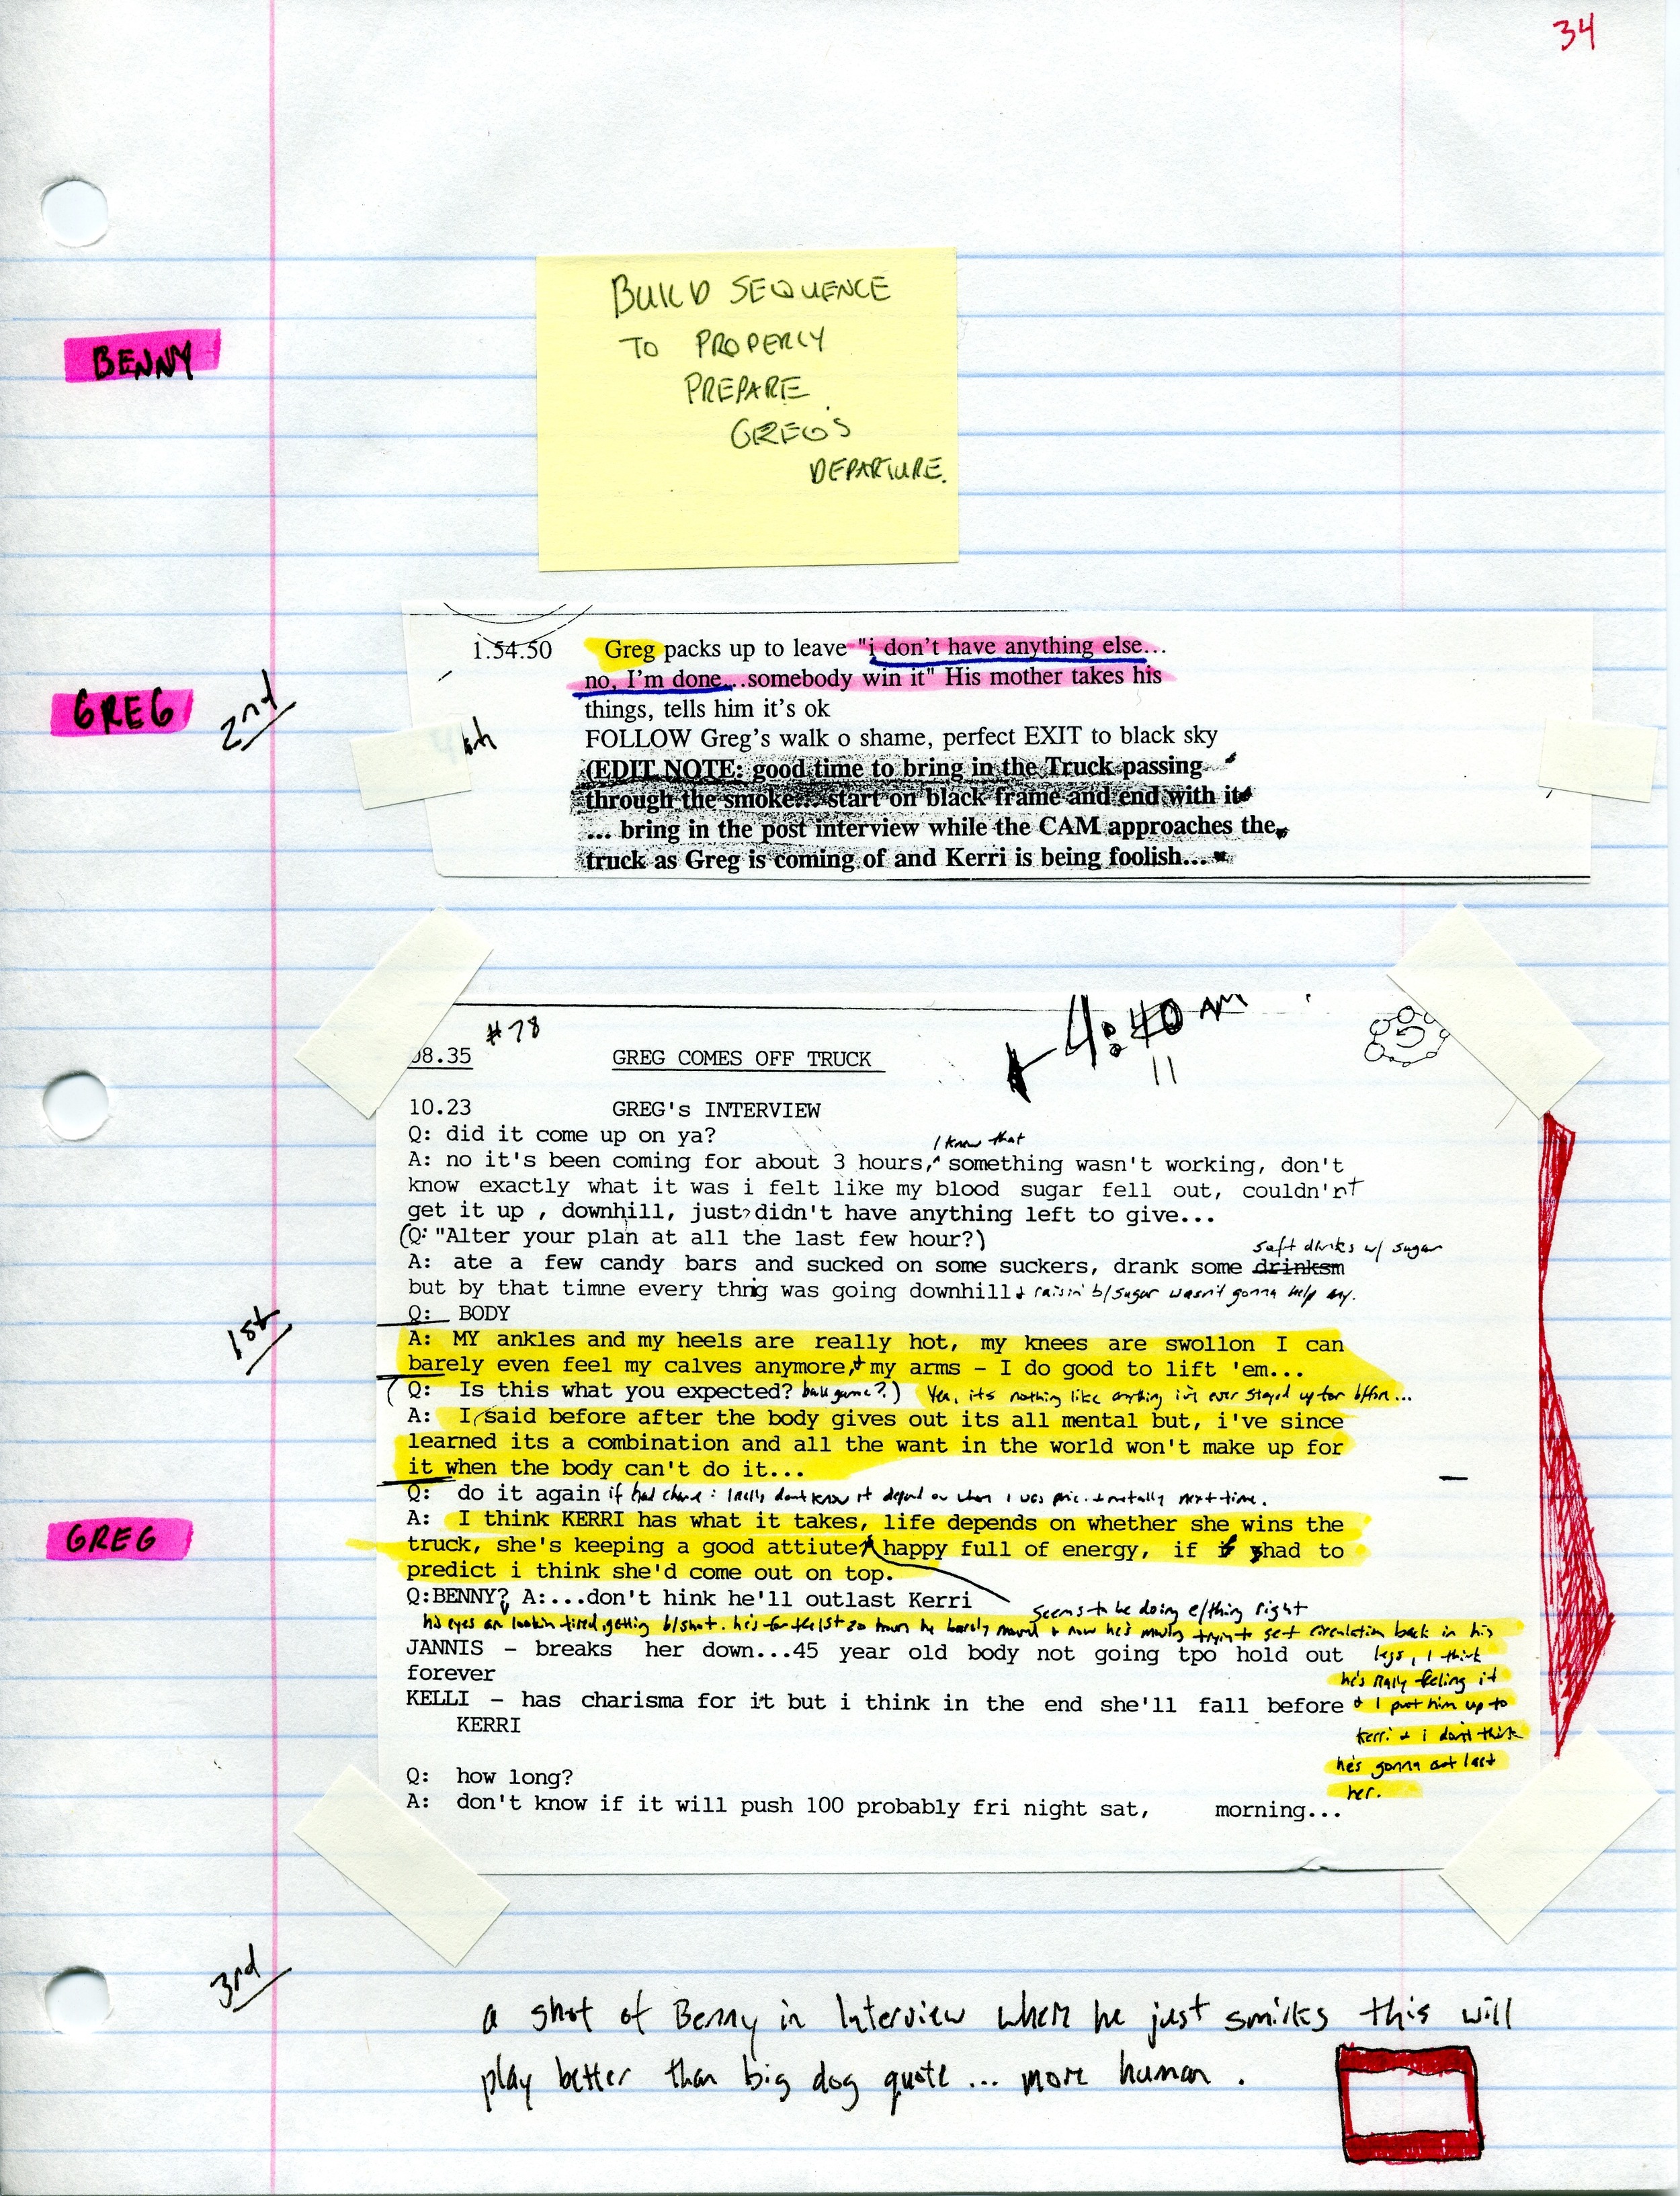 34
BUILD SEQUENCE
TO PROPERLY
PREPARE
GREG'S
DEPARTURE.
BENNY
1.54.50 Greg packs up to leave "i don't have anything else...
no, I'm done...somebody win it" His mother takes his
things, tells him it's ok
GREG 2nd
FOLLOW Greg's walk o shame, perfect EXIT to black sky
(EDIT NOTE: good time to bring in the Truck passing
through the smoke... start on black frame and end with it
... bring in the post interview while the CAM approaches the
truck as Greg is coming of and Kerri is being foolish...
#78
4:40 AM
11
08.35 GREG COMES OFF TRUCK
10.23 GREG's INTERVIEW
Q: did it come up on ya?
I knew that
A: no it's been coming for about 3 hours,^ something wasn't working, don't
know exactly what it was i felt like my blood sugar fell out, couldn'nt
get it up , downhill, just didn't have anything left to give...
(Q: "Alter your plan at all the last few hour?)
soft drinks w/ sugar
A: ate a few candy bars and sucked on some suckers, drank some drinksm
but by that timne every thnig was going downhill + raisin' b/sugar wasn't gonna help any.
Q: BODY
1st
A: MY ankles and my heels are really hot, my knees are swollon I can
barely even feel my calves anymore,+ my arms - I do good to lift 'em...
(Q: Is this what you expected? ball game?) Yea, its nothing like anything i've ever stayed up for b/forn...
A: I said before after the body gives out its all mental but, i've since
learned its a combination and all the want in the world won't make up for
it when the body can't do it...
Q: do it again if had chance: I really don't know it depend on when I was + mentally next time.
GREG
A: I think KERRI has what it takes, life depends on whether she wins the
truck, she's keeping a good attiute, happy full of energy, if i had to
predict i think she'd come out on top.
Q:BENNY? A:...don't hink he'll outlast Kerri
seems to be doing e/thing right
his eyes are lookin tired, getting b/shot. he's for the 1st 20 hours he barely moved + now he's moving tryin to get circulation back in his
legs, I think
he's really feeling it
+ I put him up to
Kerri + i don't think
he's gonna out last
her.
JANNIS - breaks her down...45 year old body not going tpo hold out
forever
KELLI - has charisma for it but i think in the end she'll fall before
KERRI
Q: how long?
A: don't know if it will push 100 probably fri night sat, morning...
3rd
a shot of Benny in Interview where he just smirks this will
play better than big dog quote ... more human .